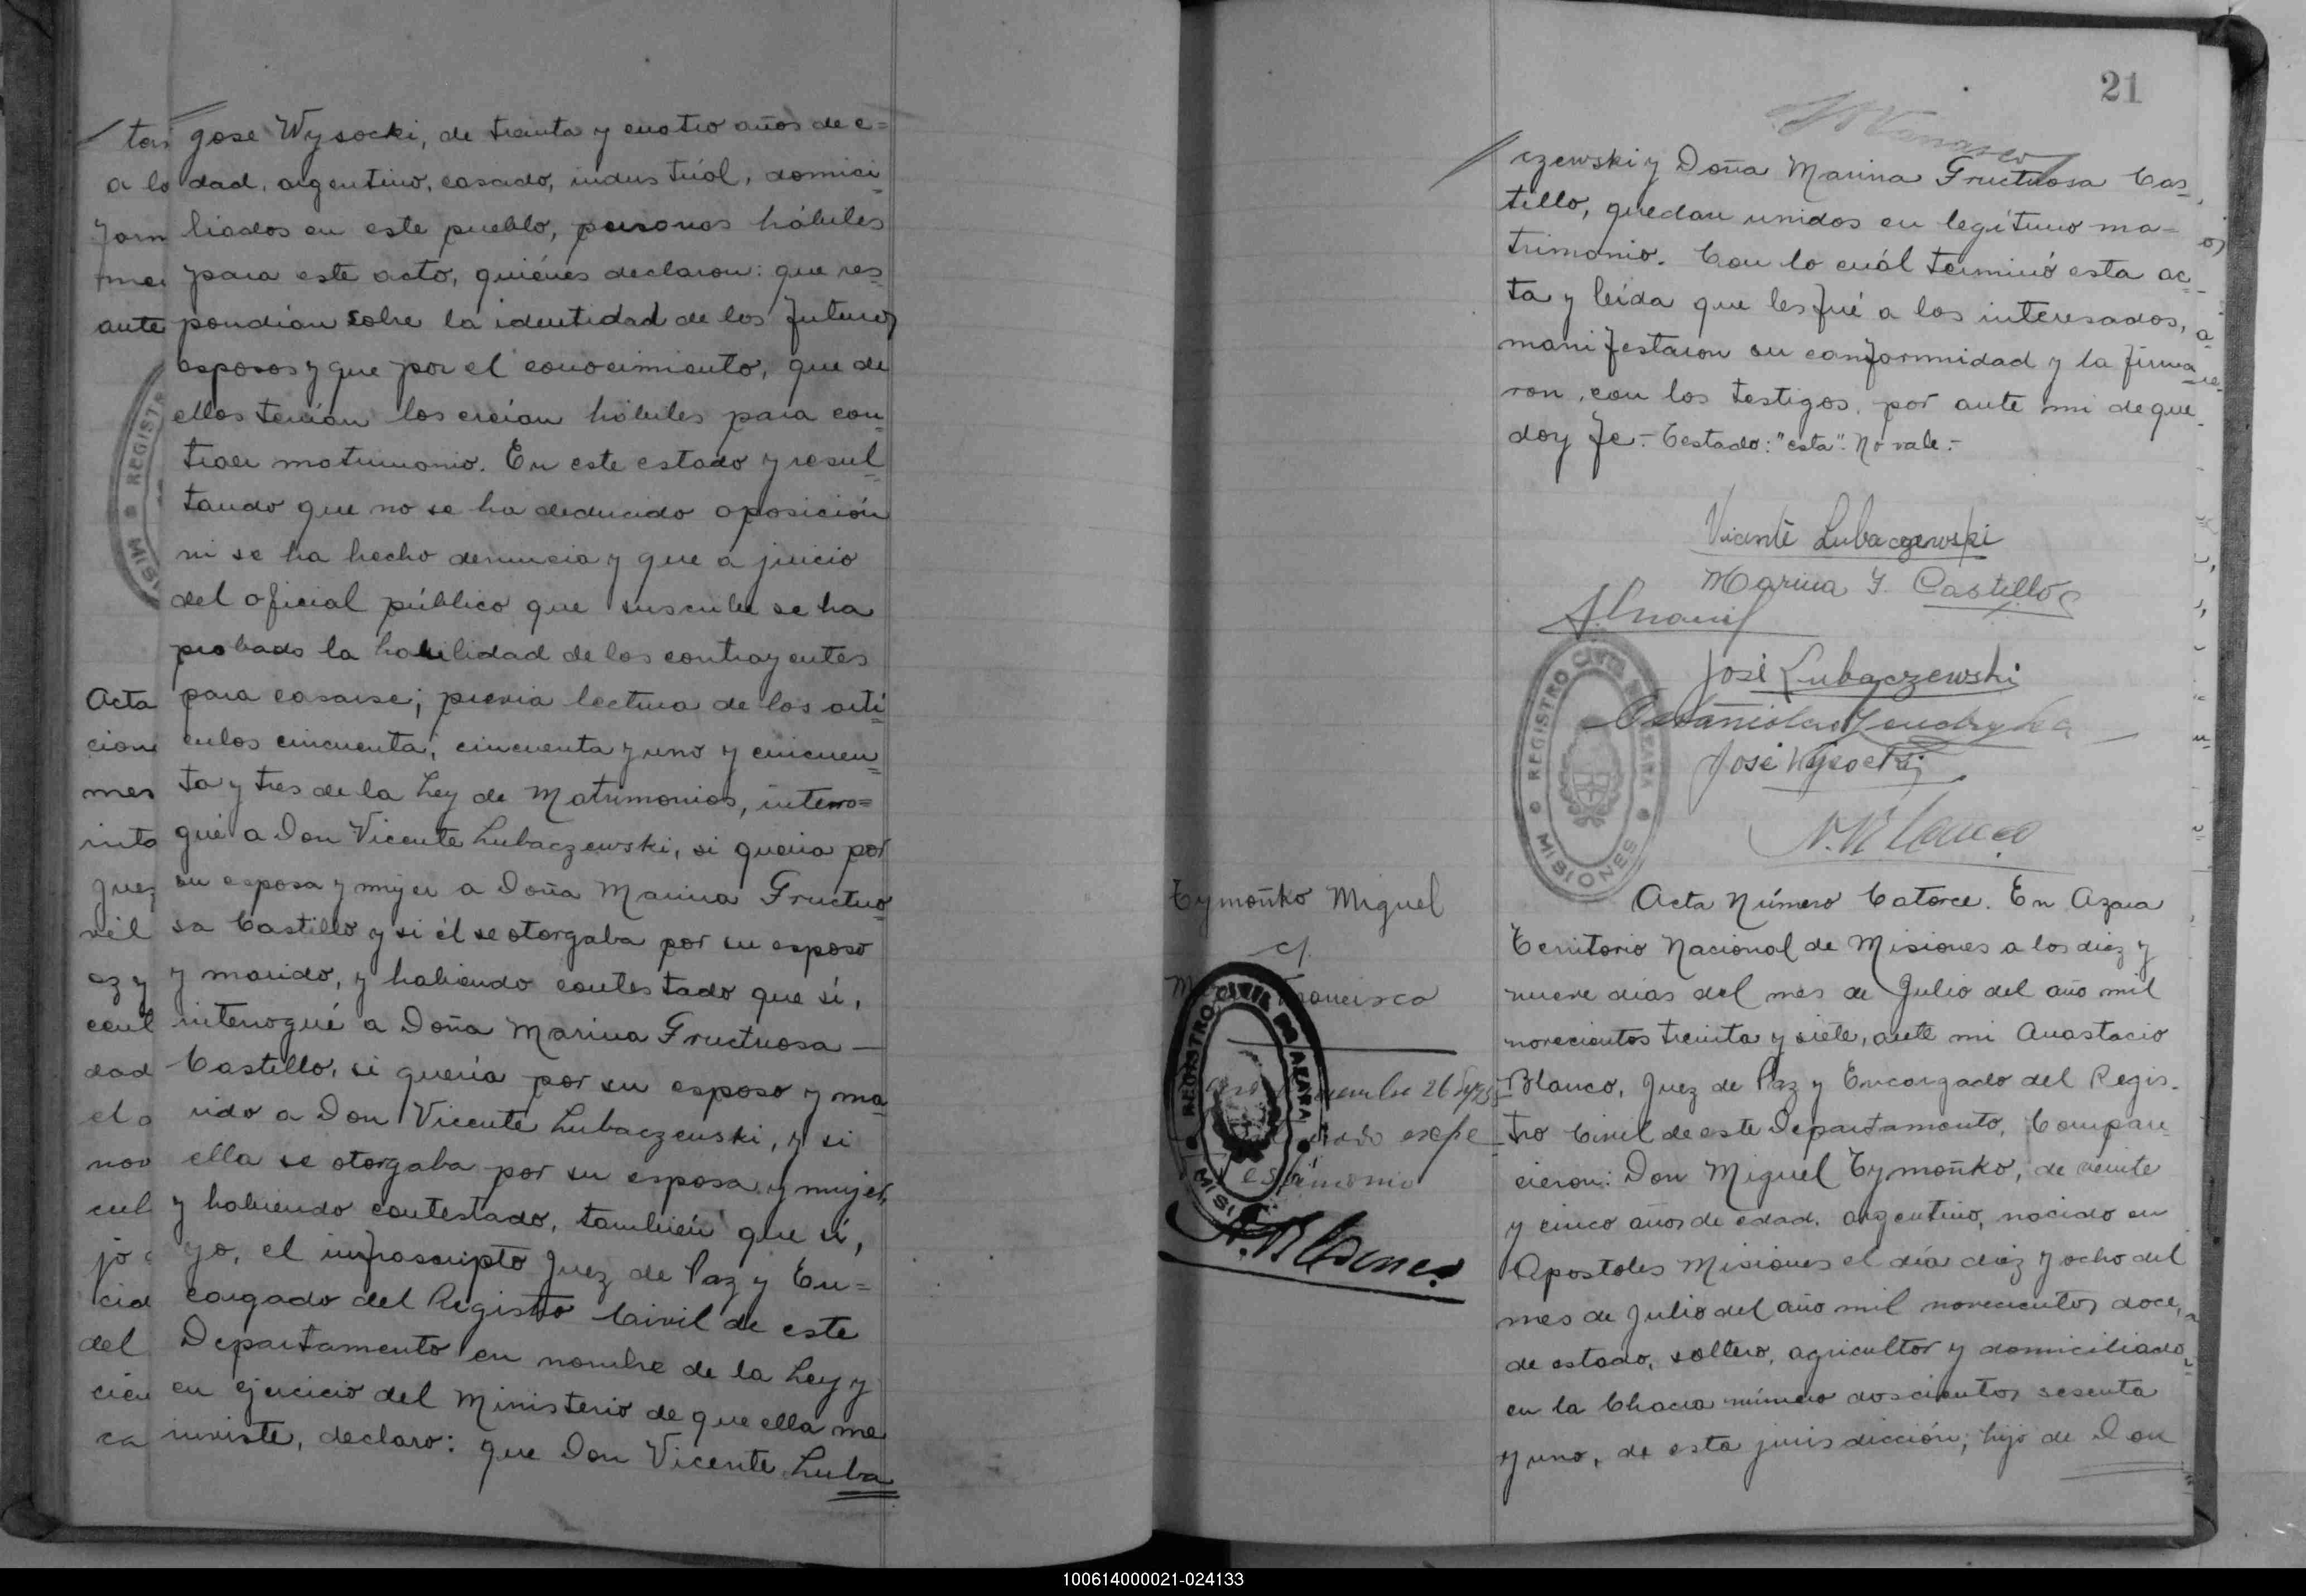 José Wysocki, de treinta y cuatro años de e=
dad, argentino, casado, industriál, domici-
liados en este pueblo, personas hábiles
para este acto, quiénes declaron: que res-
pondían sobre la identidad de los futuros
esposos y que por el conocimiento, que de
ellos tenían los creían hábiles para con-
traer matrimonio. En este estado y resul-
tando que no se ha deducido oposición
ni se ha hecho denuncia y que a juicio
del oficial público que suscribe se ha
probado la habilidad de los contrayentes
para casarse; previa lectura de los arti-
culos cincuenta, cincuenta y uno y cincuen-
ta y tres de la Ley de Matrimonios, interro=
gué a Don Vicente Lubaczewski, si quería por
su esposa y mujer a Doña Marina Fructuo-
sa Castillo y si él se otorgaba por su esposo
y marido, y habiendo contestado que sí,
interrogué a Doña Marina Fructuosa —
Castillo, si quería por su esposo y ma-
rido a Don Vicente Lubaczewski, y si
ella se otorgaba por su esposa y mujer,
y habiendo contestado, también que sí,
yo, el infrascripto Juez de Paz y En=
cargado del Registro Civil de este
Departamento en nombre de la Ley y
en ejercicio del Ministerio de que ella me
inviste, declaro: que Don Vicente Luba
Acta
mes
del
21
czewski y Doña Marina Fructuosa Cas-
tillo, quedan unidos en legítimo ma-
trimonio. Con lo cuál terminó esta ac-
ta y leída que les fué a los interesados,
manifestaron su conformnidad y la firma-
ron, con los testigos, por ante mi de que
doy fe.- Testado: "esta". No vale.-
Vicente Lubaczewski
Marina F. Castillo
José Lubaczewski
José Wysocki
A. Blanco
REGISTRO CIVIL DE AZARA
MISIONES
Tymoñko Miguel
c/.
Francisca
REGISTRO CIVIL DE AZARA
MISIONES
A. Blanco
Acta Número Catorce. En Azara
Territorio Nacional de Misiones a los diez y
nueve días del mes de Julio del año mil
novecientos treinta y siete, ante mi Anastacio
Blanco, Juez de Paz y Encargado del Regis-
tro Civil de este Departamento, Compare-
cieron: Don Miguel Tymoñko, de veinte
y cinco años de edad, argentino, nacido en
Apostoles Misiones el día diez y ocho del
mes de Julio del año mil novecientos doce,
de estado, soltero, agricultor y domiciliado
en la Chacra número doscientos sesenta
y uno, de esta jurisdicción; hijo de Don
100614000021-024133